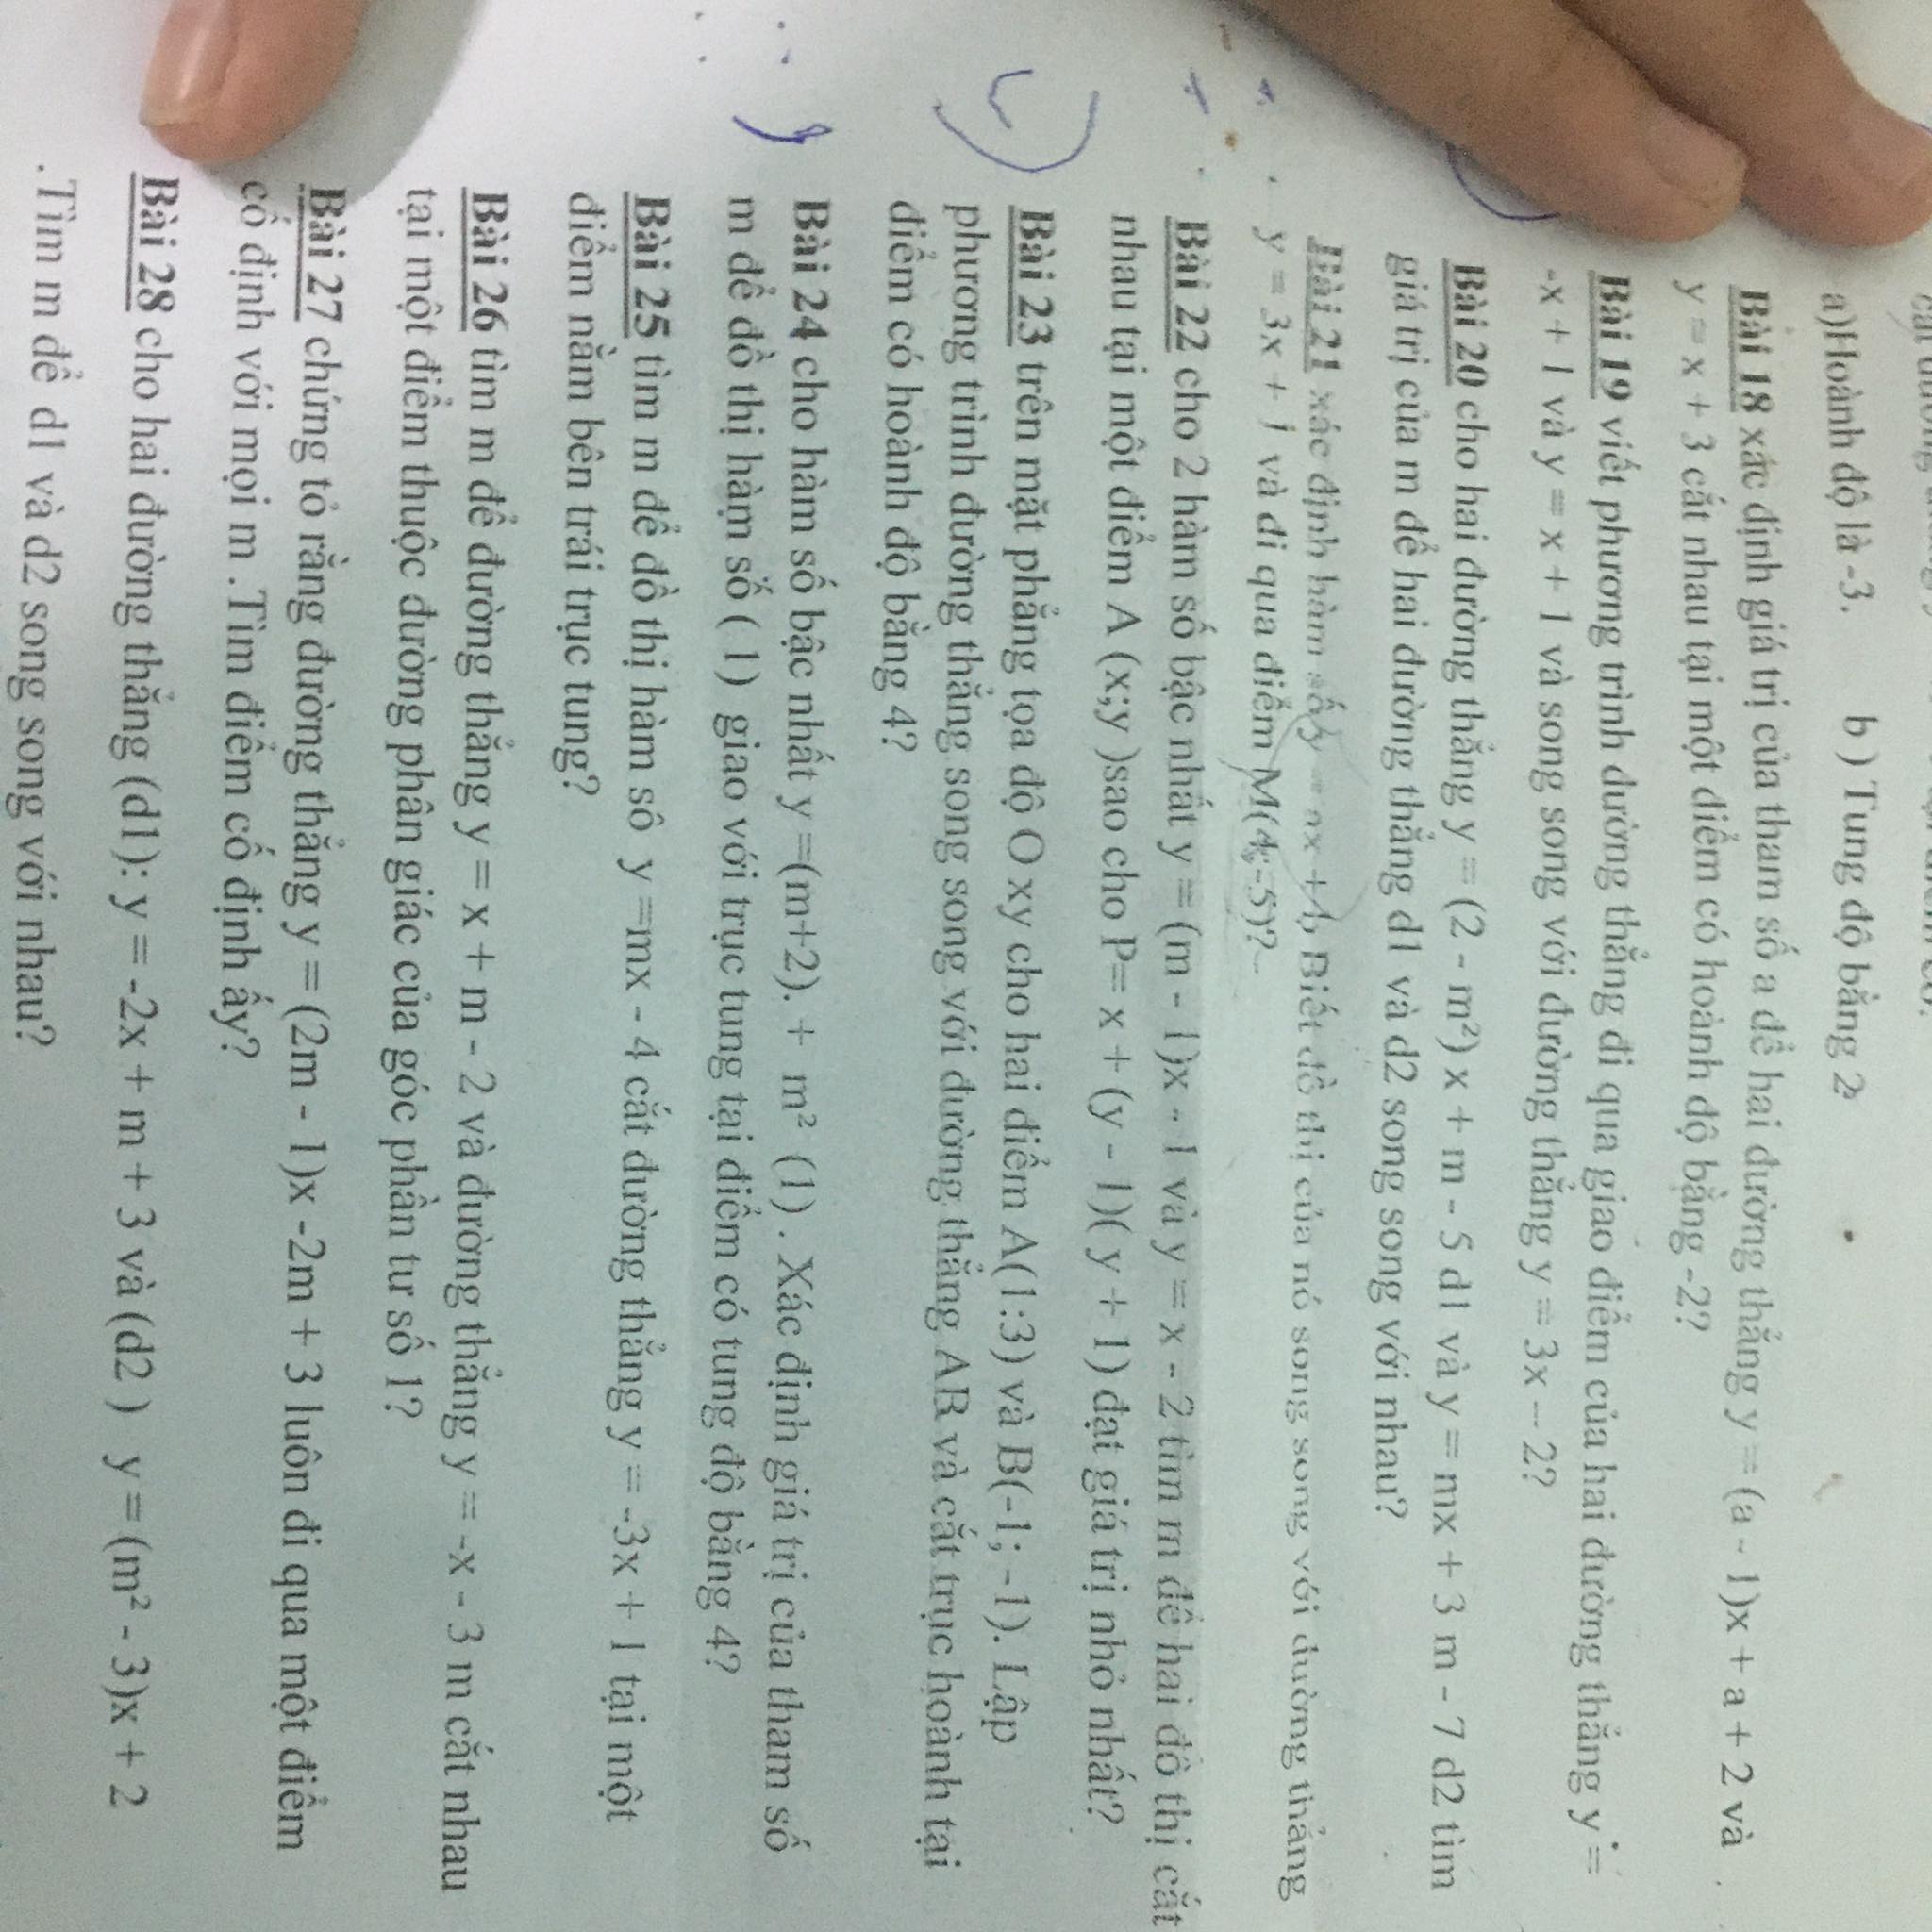 a)Hoành độ là -3. b ) Tung độ bằng 2
Bài 18 xác định giá trị của tham số a để hai đường thẳng y = (a - 1)x + a + 2 và
y = x + 3 cắt nhau tại một điểm có hoành độ bằng -2?
Bài 19 viết phương trình đường thẳng đi qua giao điểm của hai đường thẳng y =
-x + 1 và y = x + 1 và song song với đường thẳng y = 3x - 2?
Bài 20 cho hai đường thẳng y = (2 - m²) x + m - 5 d1 và y = mx + 3 m - 7 d2 tìm
giá trị của m để hai đường thẳng d1 và d2 song song với nhau?
Bài 21 xác định hàm số y = ax + b Biết đồ thị của nó song song với đường thẳng
y = 3x + 1 và đi qua điểm M(4;-5)?
Bài 22 cho 2 hàm số bậc nhất y = (m - 1)x - 1 và y = x - 2 tìm m để hai đồ thị cắt
nhau tại một điểm A (x;y )sao cho P= x + (y - 1)( y + 1) đạt giá trị nhỏ nhất?
Bài 23 trên mặt phẳng tọa độ O xy cho hai điểm A(1:3) và B(-1; -1). Lập
phương trình đường thẳng song song với đường thẳng AB và cắt trục hoành tại
điểm có hoành độ bằng 4?
Bài 24 cho hàm số bậc nhất y =(m+2). + m² (1) . Xác định giá trị của tham số
m để đồ thị hàm số ( 1) giao với trục tung tại điểm có tung độ bằng 4?
Bài 25 tìm m để đồ thị hàm số y =mx - 4 cắt đường thẳng y = -3x + 1 tại một
điểm nằm bên trái trục tung?
Bài 26 tìm m để đường thẳng y = x + m - 2 và đường thẳng y = -x - 3 m cắt nhau
tại một điểm thuộc đường phân giác của góc phần tư số 1?
Bài 27 chứng tỏ rằng đường thẳng y = (2m - 1)x -2m + 3 luôn đi qua một điểm
cố định với mọi m .Tìm điểm cố định ấy?
Bài 28 cho hai đường thẳng (d1): y = -2x + m + 3 và (d2 ) y = (m² - 3)x + 2
.Tìm m để d1 và d2 song song với nhau?